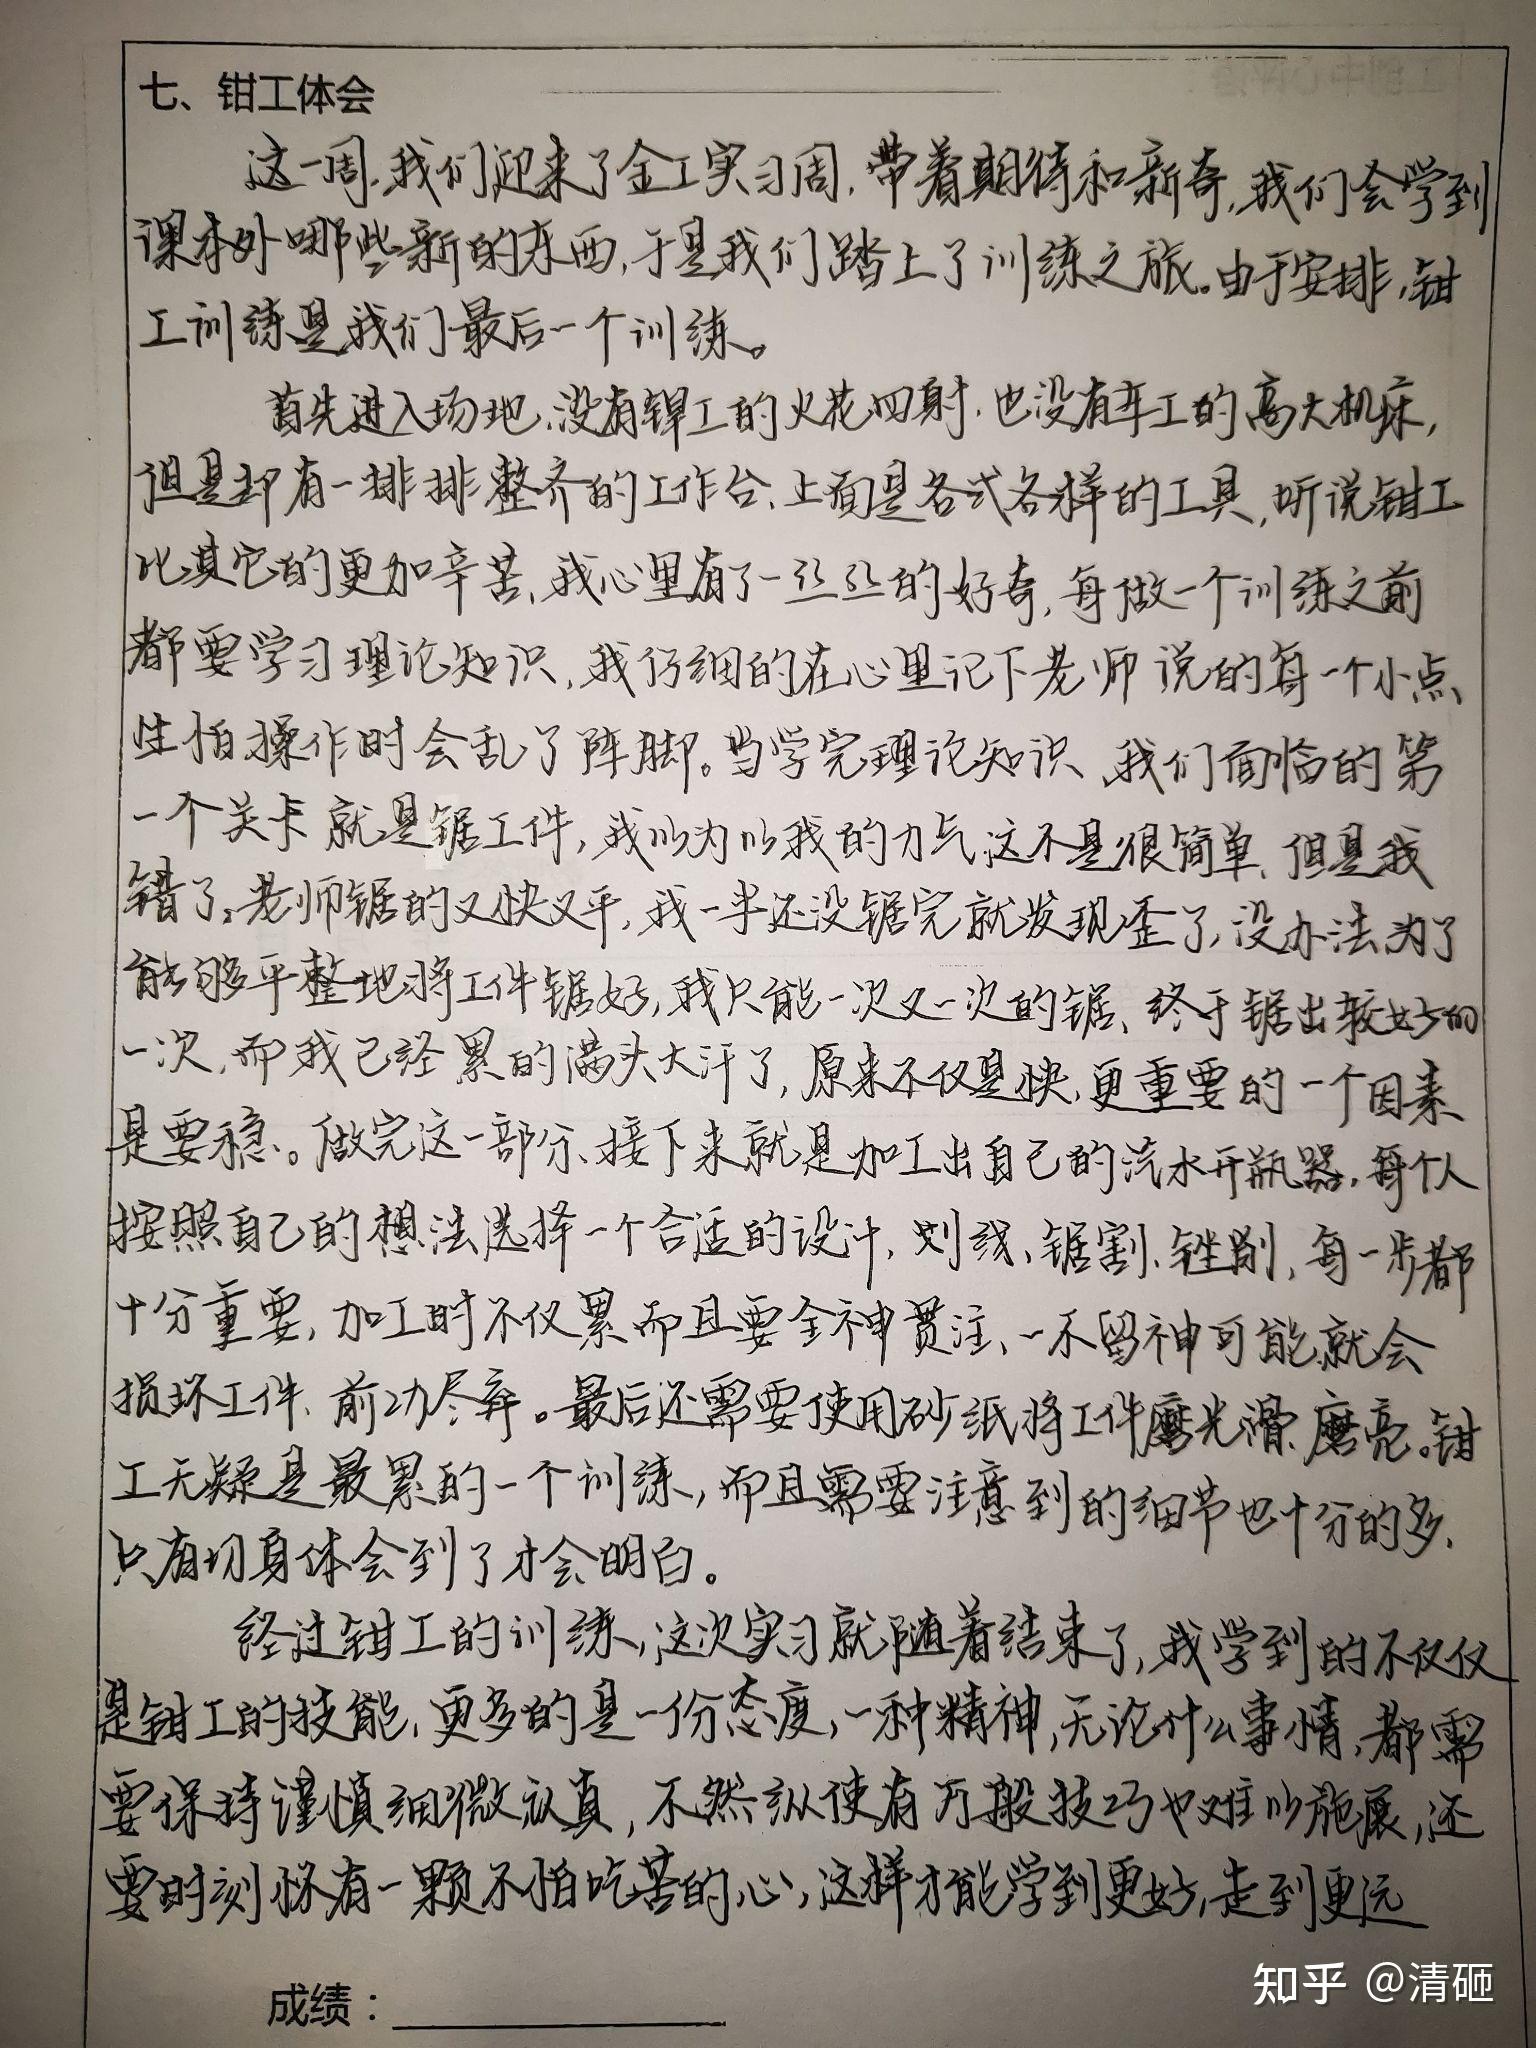 七、钳工体会
这一周,我们迎来了金工实习周,带着期待和新奇,我们会学到
课本外哪些新的东西,于是我们踏上了训练之旅。由于安排,钳
工训练是我们最后一个训练。
首先进入场地,没有焊工的火花四射,也没有车工的高大机床,
但是却有一排排整齐的工作台、上面是各式各样的工具,听说钳工
比其它的更加辛苦,我心里有了一丝丝的好奇,每做一个训练之前
都要学习理论知识,我仔细的在心里记下老师说的每一个小点、
生怕操作时会乱了阵脚。当学完理论知识、我们面临的第
一个关卡就是锯工件,我以为以我的力气这不是很简单,但是我
错了,老师锯的又快又平,我一半还没锯完就发现歪了,没办法,为了
能够平整地将工件锯好,我只能一次又一次的锯、终于锯出较好的
一次,而我已经累的满头大汗了,原来不仅是快,更重要的一个因素
是要稳。做完这一部分、接下来就是加工出自己的汽水开瓶器,每个人
按照自己的想法选择一个合适的设计,划线、锯割、锉削,每一步都
十分重要,加工时不仅累而且要全神贯注、一不留神可能就会
损坏工件、前功尽弃。最后还需要使用砂纸将工件磨光滑、磨亮。钳
工无疑是最累的一个训练,而且需要注意到的细节也十分的多,
只有切身体会到了才会明白。
经过钳工的训练,这次实习就随着结束了,我学到的不仅仅
是钳工的技能,更多的是一份态度,一种精神,无论什么事情,都需
要保持谨慎细微认真,不然纵使有万般技巧也难以施展,还
要时刻怀有一颗不怕吃苦的心,这样才能学到更好,走到更远
成绩:
知乎 @清砸